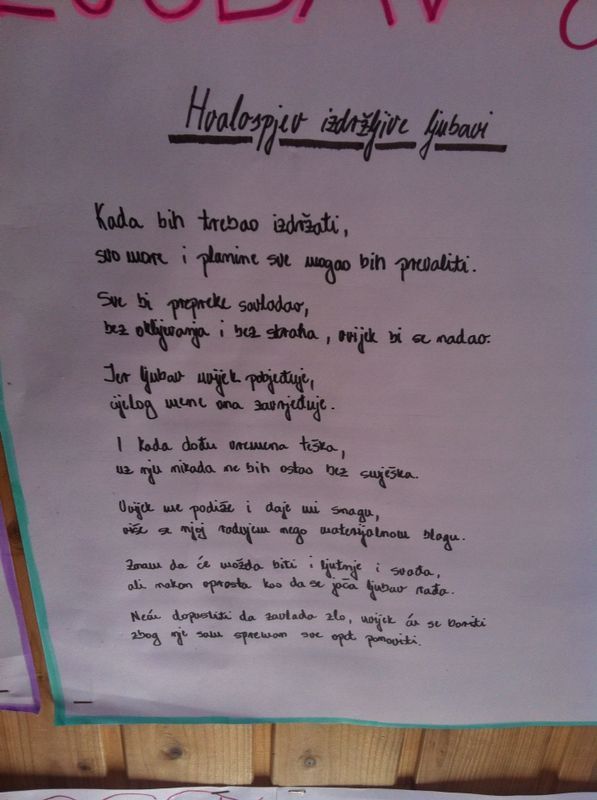 LJUBAV
Hvalospjev izdržljive ljubavi
Kada bih trebao izdržati,
svo more i planine sve mogao bih prevaliti.
Sve bi prepreke savladao,
bez oklijevanja i bez straha, uvijek bi se nadao.
Jer ljubav uvijek pobjeđuje,
cijelog mene ona zavrjeđuje.
I kada dođu vremena teška,
uz nju nikada ne bih ostao bez smješka.
Uvijek me podiže i daje mi snagu,
više se njoj radujem nego materijalnom blagu.
Znam da će možda biti i ljutnje i svađa,
ali nakon oprosta kao da se jača ljubav rađa.
Neću dopustiti da zavlada zlo, uvijek ću se boriti
zbog nje sam spreman sve opet ponoviti.